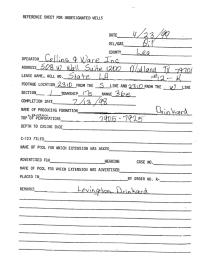 REFERENCE SHEET FOR UNDESIGNATED WELLS
DATE 4/23/90
OIL/GAS Oil
COUNTY Lea
OPERATOR Collins & Ware Inc
ADDRESS 508 W Wall Suite 1200 Midland TX 79701
LEASE NAME, WELL NO. State LA #2-K
FOOTAGE LOCATION 2310 FROM THE S LINE AND 2310 FROM THE W LINE
SECTION 1 TOWNSHIP 17S RANGE 36E
COMPLETION DATE 7/13/98
NAME OF PRODUCING FORMATION Drinkard
TOP OF PERFORATIONS 7906-7925
DEPTH TO CASING SHOE
C-123 FILED
NAME OF POOL FOR WHICH EXTENSION WAS ASKED
ADVERTISED FOR HEARING CASE NO.
NAME OF POOL FOR WHICH EXTENSION WAS ADVERTISED
PLACED IN BY ORDER NO. R-
REMARKS Lovington Drinkard